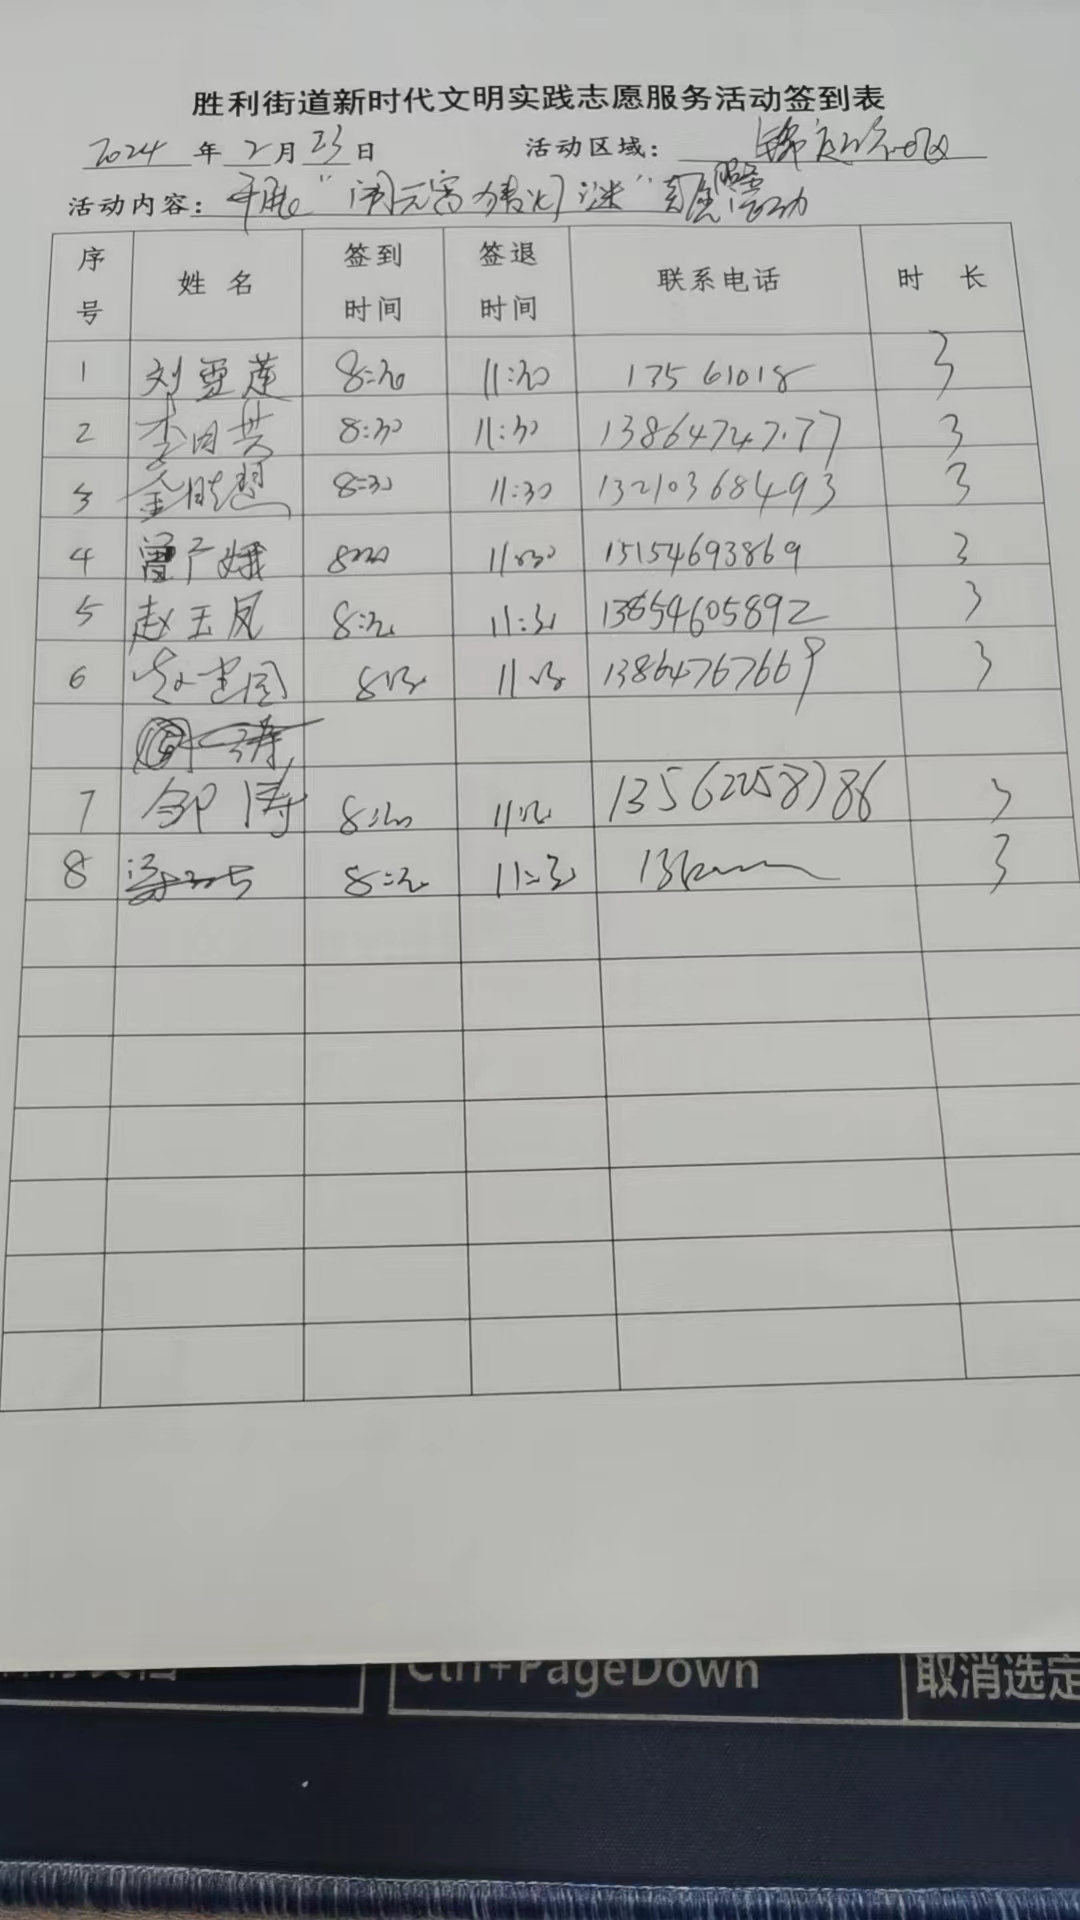 胜利街道新时代文明实践志愿服务活动签到表
2024 年 2 月 23 日 活动区域:
活动内容: 开展“闹元宵 猜灯谜”志愿服务活动
序号 姓名 签到时间 签退时间 联系电话 时长
1 刘雪莲 8:30 11:30 13561018 3
2 李 8:30 11:30 13864747.77 3
3 8:30 11:30 13210368493 3
4 曾广娥 8:30 11:30 15154693869 3
5 赵玉凤 8:30 11:30 13854605892 3
6 赵建国 8:30 11:30 13864767669 3
7 邹涛 8:30 11:30 13562258786 3
8 8:30 11:30 3
Ctrl+PageDown 取消选定